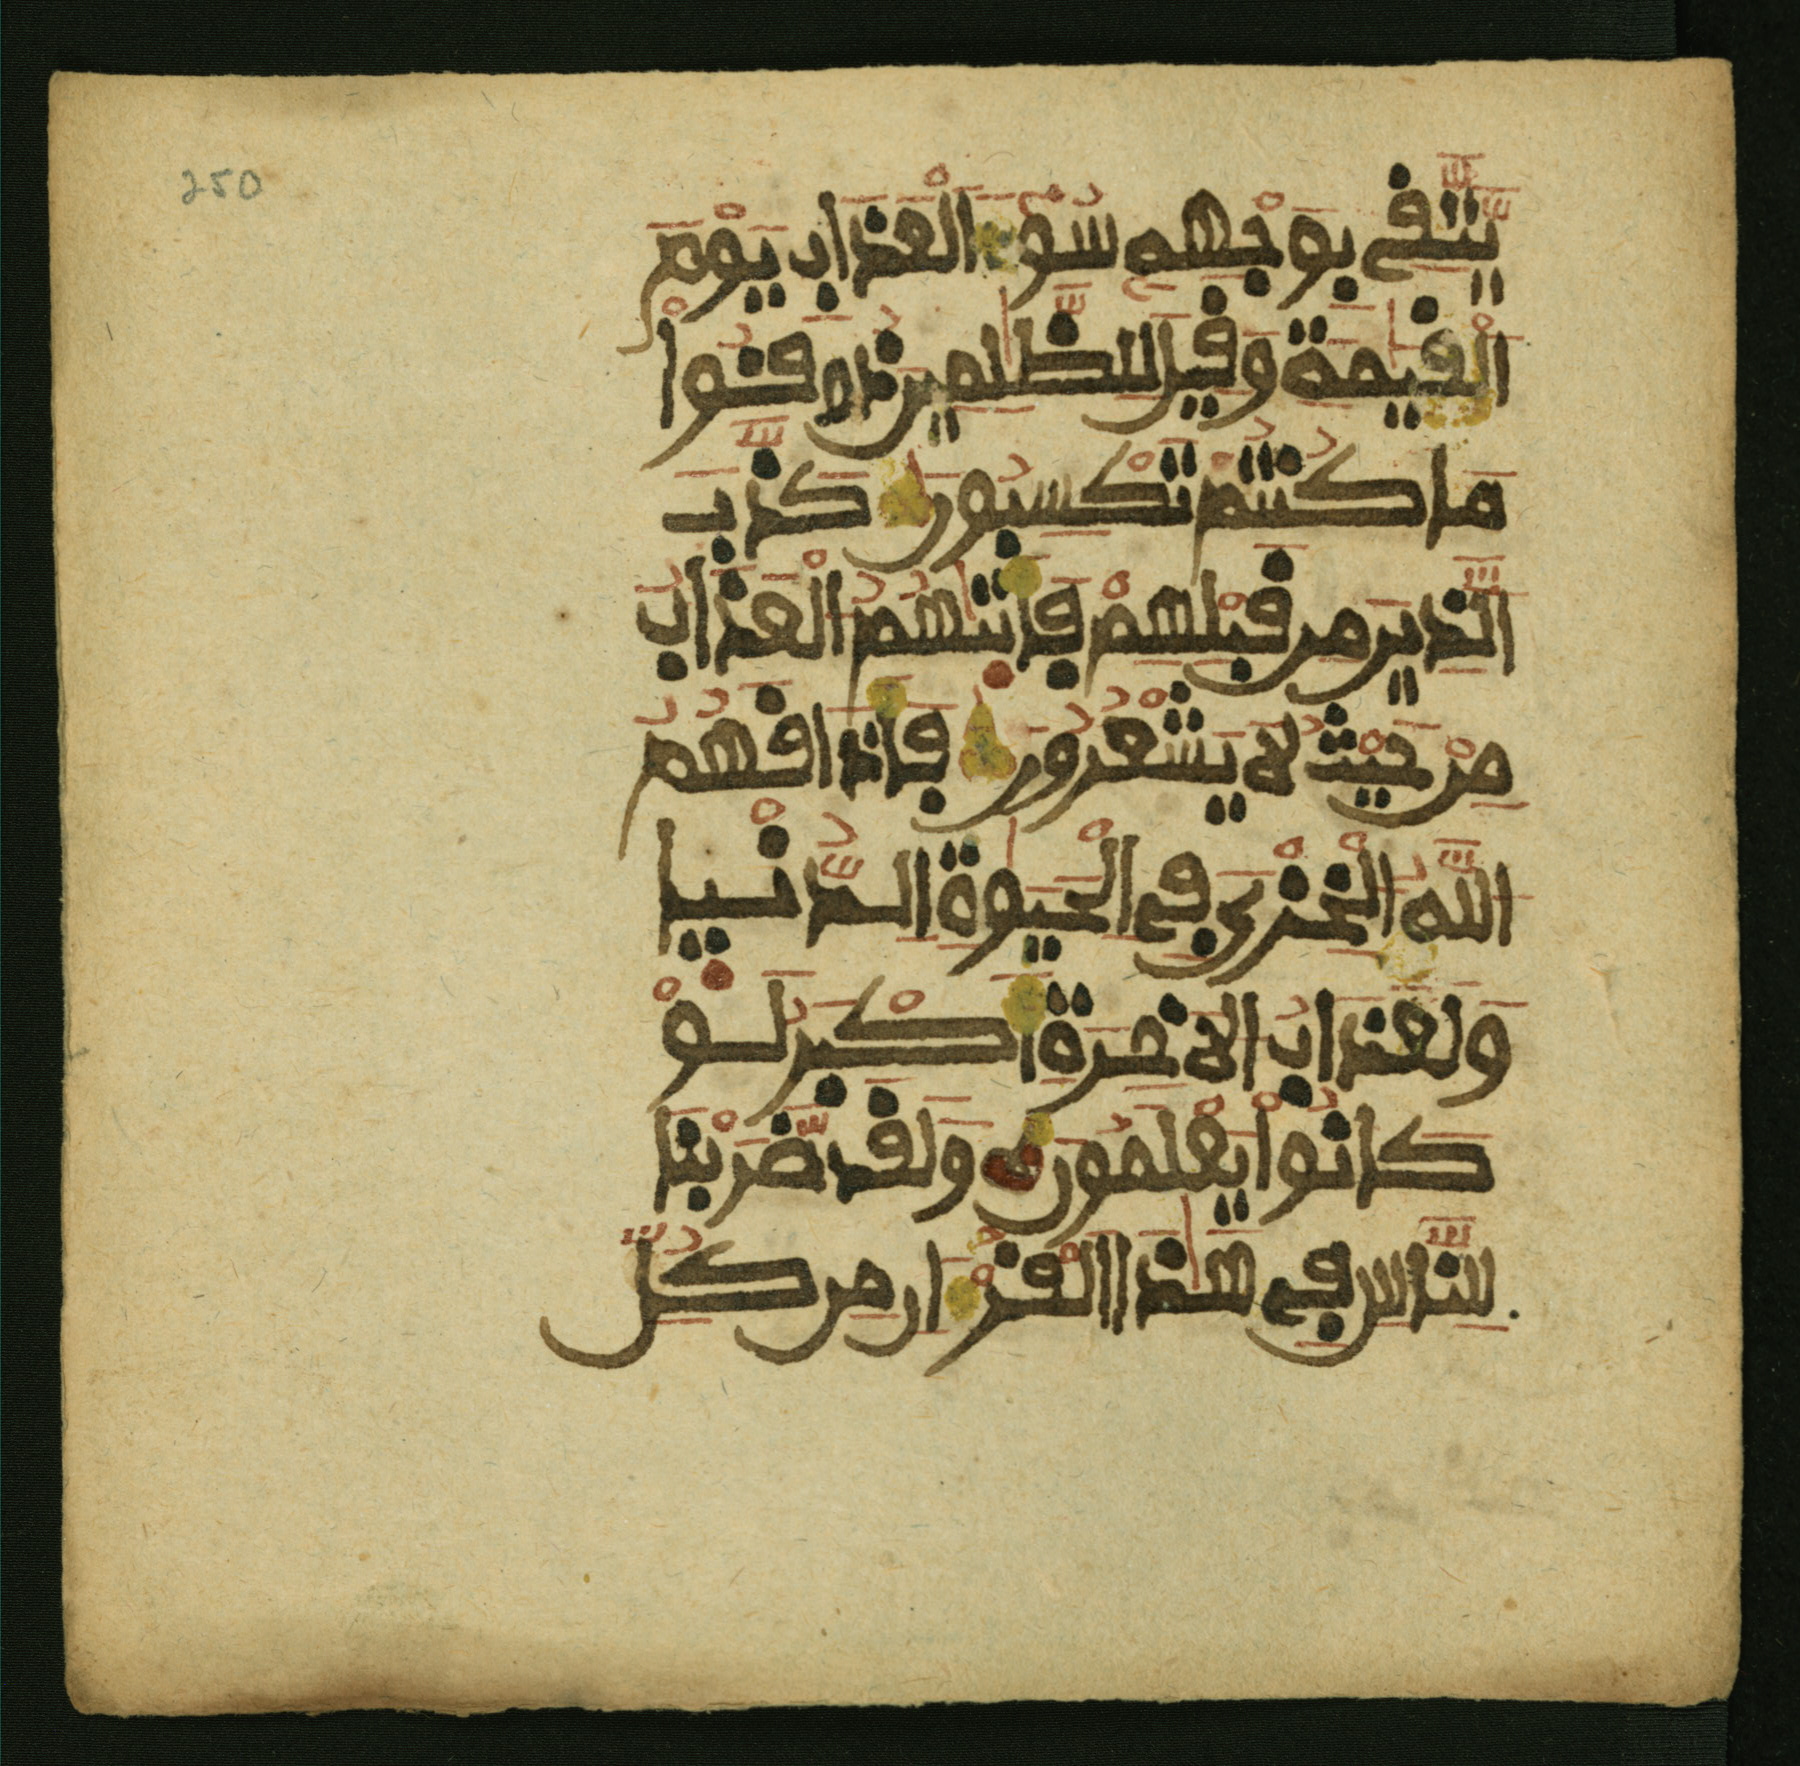 250
يَتَّقِى بِوَجْهِهِ سُوءَ الْعَذَابِ يَوْمَ
الْقِيَٰمَةِ وَقِيلَ لِلظَّٰلِمِينَ ذُوقُوا
مَا كُنتُمْ تَكْسِبُونَ كَذَّبَ
الَّذِينَ مِن قَبْلِهِمْ فَأَتَٰهُمُ الْعَذَابُ
مِنْ حَيْثُ لَا يَشْعُرُونَ فَأَذَاقَهُمُ
اللَّهُ الْخِزْىَ فِى الْحَيَوٰةِ الدُّنْيَا
وَلَعَذَابُ الْأَخِرَةِ أَكْبَرُ لَوْ
كَانُوا يَعْلَمُونَ وَلَقَد ضَّرَبْنَا
لِلنَّاسِ فِى هَٰذَا الْقُرْءَانِ مِن كُلِّ